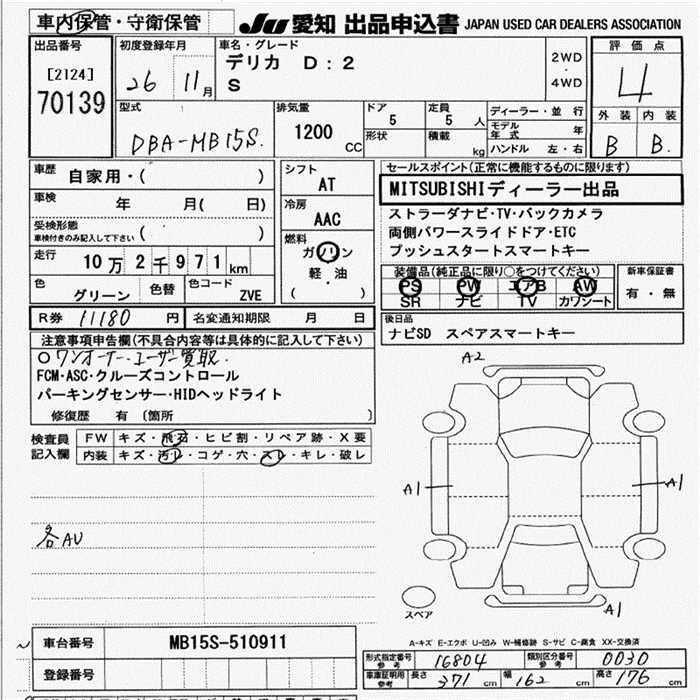 車内保管・守衛保管
JU 愛知 出品申込書 JAPAN USED CAR DEALERS ASSOCIATION
出品番号
[2124]
70139
初度登録年月
26 11月
車名・グレード
デリカ D:2
S
2WD
・
4WD
評価点
4
外装 内装
B B.
型式
DBA-MB15S.
排気量
1200 CC
ドア
5
形状
定員
5 人
積載
kg
ディーラー・並行
モデル年式 年
ハンドル 左・右
車歴
自家用・( )
車検 年 月( 日)
受検形態
車検付きのみ記入して下さい ( )
走行
10万2千971km
色
グリーン
色替
色コード
ZVE
シフト
AT
冷房
AAC
燃料
ガソリン
軽・油
( )
セールスポイント(正常に機能するものに限ります)
MITSUBISHIディーラー出品
ストラーダナビ・TV・バックカメラ
両側パワースライドドア・ETC
プッシュスタートスマートキー
装備品(純正品に限り○をつけてください)
PS PW エアB AW
SR ナビ TV カワシート
新車保証書
有・無
R券 11180 円
名変通知期限 月 日
後日品
ナビSD スペアスマートキー
注意事項申告欄(不具合内容等は具体的に記入して下さい)
○ワンオーナー・ユーザー買取.
FCM・ASC・クルーズコントロール
パーキングセンサー・HIDヘッドライト
修復歴 有 〔箇所 〕
検査員記入欄
FW キズ・飛石・ヒビ割・リペア跡・X要
内装 キズ・汚レ・コゲ・穴・スレ・キレ・破レ
各AU
A2
A1
A1
スペア
A1
A-キズ E-エクボ U-凹み W-補修跡 S-サビ C-腐食 XX-交換済
車台番号 MB15S-510911
登録番号
形式指定番号 参考 16804
類別区分番号 参考 0030
車庫証明用 参考 長さ 371cm 幅 162cm 高さ 176cm